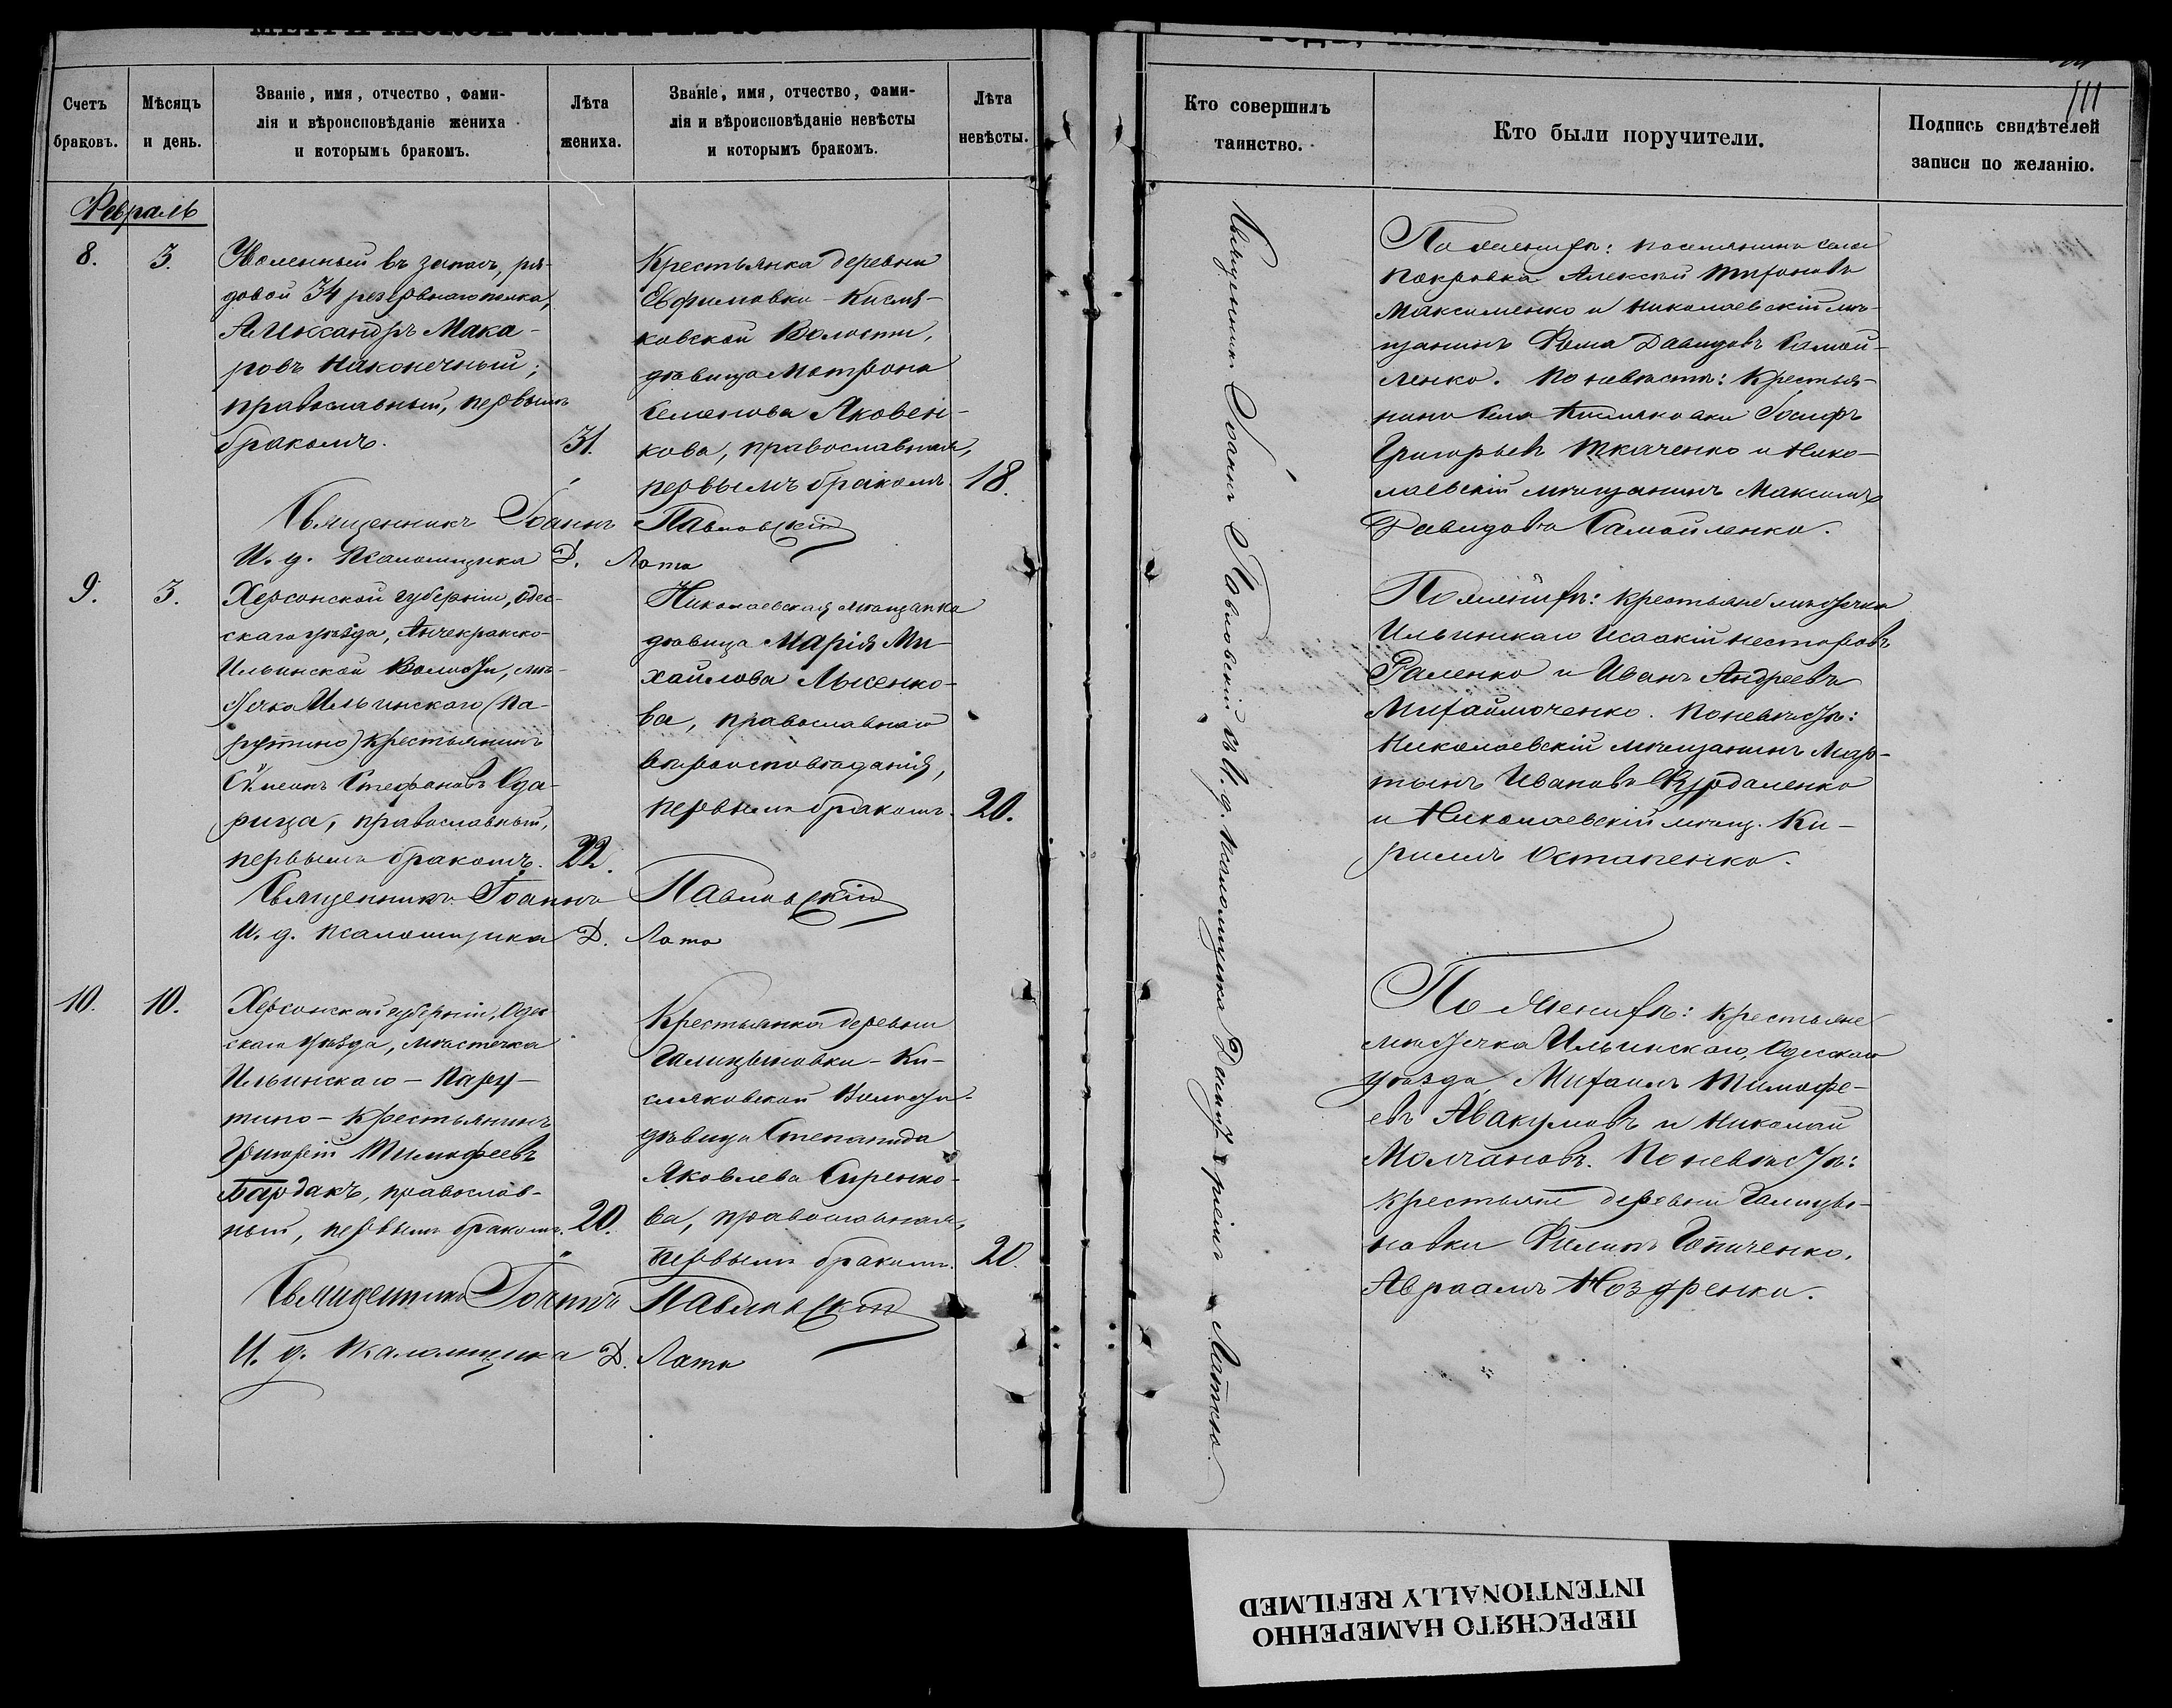 111
Счетъ
браковъ.
Мѣсяцъ
и день.
Званіе, имя, отчество, фами-
лія и вѣроисповѣданіе жениха
и которымъ бракомъ.
Лѣта
жениха.
Званіе, имя, отчество, фами-
лія и вѣроисповѣданіе невѣсты
и которымъ бракомъ.
Лѣта
невѣсты.
Февраль
8.
3.
Уволенный въ запасъ, ря-
довой 34 резервнаго полка,
Александръ Мака-
ровъ Наконечный;
православный, первымъ
бракомъ.
31.
Крестьянка деревни
Евфимовки - Кисля-
ковской Волости,
дѣвица Матрона
Семенова Яковен-
кова, православная,
первымъ бракомъ
18.
Священникъ Іоаннъ Павловскій
И. д. псаломщика Д. Лата
9.
3.
Херсонской губерніи, Одес-
скаго уѣзда, Анчекракско-
Ильинской Волости, мѣ-
стечка Ильинскаго (Па-
рутино) крестьянинъ
Сѵмеонъ Стефановъ Ода-
рица, православный,
первымъ бракомъ.
22.
Николаевская мѣщанка
дѣвица Марія Ми-
хайлова Лысенко-
ва, православнаго
вѣроисповѣданія,
первымъ бракомъ.
20.
Священникъ Іоаннъ Павловскій
И. д. псаломщика Д. Лата
10.
10.
Херсонской губерніи, Одес
скаго уѣзда, мѣстечка
Ильинскаго - Пару-
тино - крестьянинъ
Григорій Тимофеевъ
Бардакъ, православ-
ный, первымъ бракомъ.
20.
Крестьянка деревни
Галицыновки - Ки-
сляковской Волости
дѣвица Степанида
Яковлева Сиренко-
ва, православная,
первымъ бракомъ.
20.
Священникъ Іоаннъ Павловскій
И. д. псаломщика Д. Лата
Кто совершилъ
таинство.
Кто были поручители.
Подпись свидѣтелей
записи по желанію.
Священникъ Іоаннъ Павловскій съ И. д. псаломщика Латою.
По женихѣ: поселянинъ села
Покровка Алексѣй Трифоновъ
Максименко и Николаевскій мѣ-
щанинъ Фома Давидовъ Самой-
ленко. По невѣстѣ: крестья-
нинъ села Кисляковки Іосифъ
Григорьевъ Ткаченко и Нико-
лаевскій мѣщанинъ Максимъ
Давидовъ Самойленко.
По женихѣ: крестьяне мѣстечка
Ильинскаго Исаакій Несторовъ
Раленко и Иванъ Андреевъ
Михайлюченко. По невѣстѣ:
Николаевскій мѣщанинъ Мар-
тынъ Ивановъ Курдаленко
и Николаевскій мѣщ. Ки-
риллъ Остапенко.
По женихѣ: крестьяне
мѣстечка Ильинскаго, Одесскаго
уѣзда Михаилъ Тимофе-
евъ Авакумовъ и Николай
Молчановъ. По невѣстѣ:
крестьяне деревни Галицы-
новки Филипъ Гопиченко,
Авраамъ Ноздренко.
ПЕРЕСНЯТО НАМЕРЕННО
INTENTIONALLY REFILMED